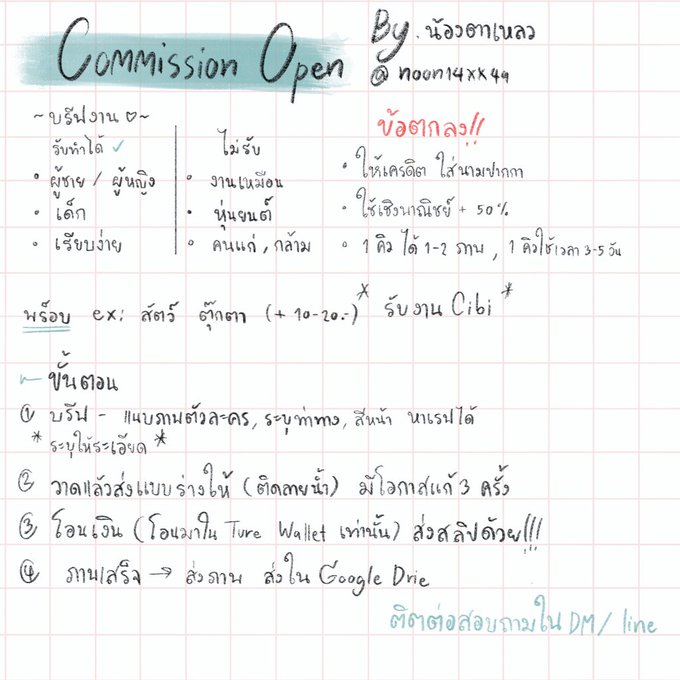 Commission Open
By. น้องตาเหลว
@noon14xx4q
~บรีฟงาน ♡~
รับทำได้ ✓
• ผู้ชาย / ผู้หญิง
• เด็ก
• เรียบง่าย
ไม่รับ
• งานเหมือน
• หุ่นยนต์
• คนแก่, กล้าม
ข้อตกลง!!
• ให้เครดิต ใส่นามปากกา
• ใช้เชิงพาณิชย์ + 50%
• 1 คิว ได้ 1-2 ภาพ, 1 คิวใช้เวลา 3-5 วัน
พร็อบ ex: สัตว์ ตุ๊กตา (+ 10-20.-) * รับงาน Cibi *
ขั้นตอน
① บรีฟ - แนบภาพตัวละคร, ระบุท่าทาง, สีหน้า หาเรปได้
* ระบุให้ระเอียด *
② วาดแล้วส่งแบบร่างให้ (ติดลายน้ำ) มีโอกาสแก้ 3 ครั้ง
③ โอนเงิน (โอนมาใน Ture Wallet เท่านั้น) ส่งสลิปด้วย!!!
④ ภาพเสร็จ → ส่งภาพ ส่งใน Google Drie
ติตต่อสอบถามใน DM/ line